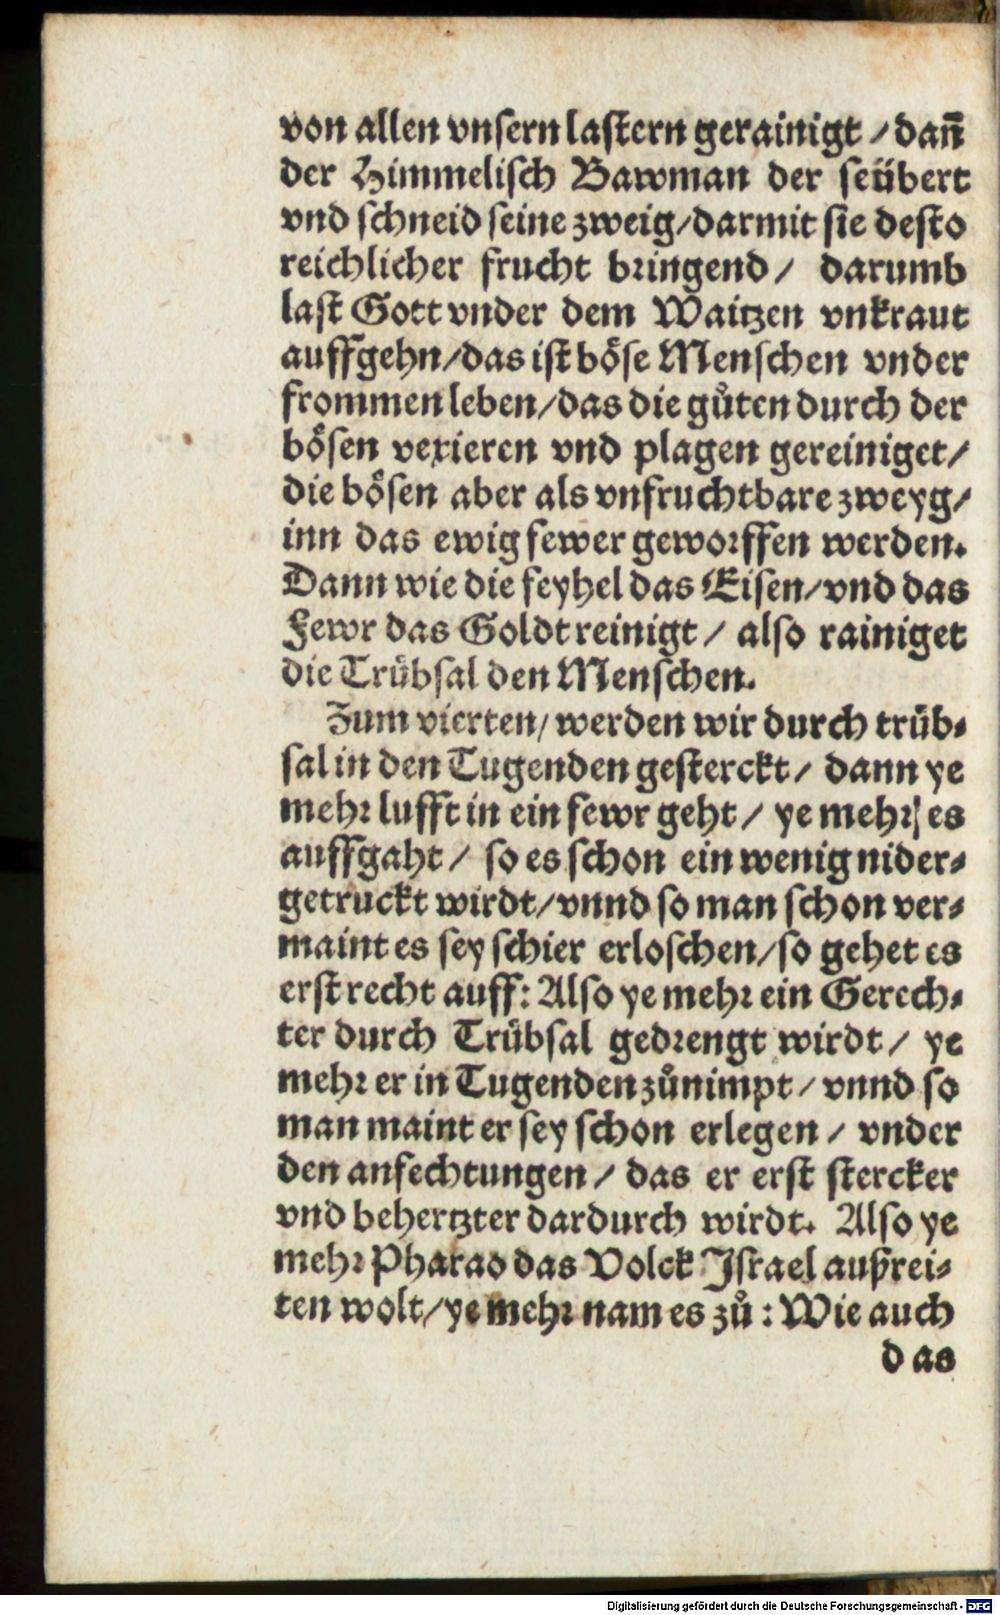 von allen vnsern lastern gerainigt / dañ
der Himmelisch Bawman der seübert
vnd schneid seine zweig/darmit sie desto
reichlicher frucht bringend / darumb
last Gott vnder dem Waitzen vnkraut
auffgehn/das ist böse Menschen vnder
frommen leben/das die gůten durch der
bösen vexieren vnd plagen gereiniget/
die bösen aber als vnfruchtbare zweyg/
inn das ewig fewer geworffen werden.
Dann wie die feyhel das Eisen/vnd das
Fewr das Goldt reinigt / also rainiget
die Trübsal den Menschen.
Zum vierten/ werden wir durch trüb⸗
sal in den Tugenden gesterckt / dann ye
mehr lufft in ein fewr geht / ye mehr es
auffgaht / so es schon ein wenig nider⸗
getruckt wirdt/vnnd so man schon ver⸗
maint es sey schier erloschen/so gehet es
erst recht auff: Also ye mehr ein Gerech⸗
ter durch Trübsal gedrengt wirdt / ye
mehr er in Tugenden zůnimpt / vnnd so
man maint er sey schon erlegen / vnder
den anfechtungen / das er erst stercker
vnd behertzter dardurch wirdt. Also ye
mehr Pharao das Volck Israel außrei⸗
ten wolt/ye mehr nam es zů : Wie auch
das
Digitalisierung gefördert durch die Deutsche Forschungsgemeinschaft - DFG